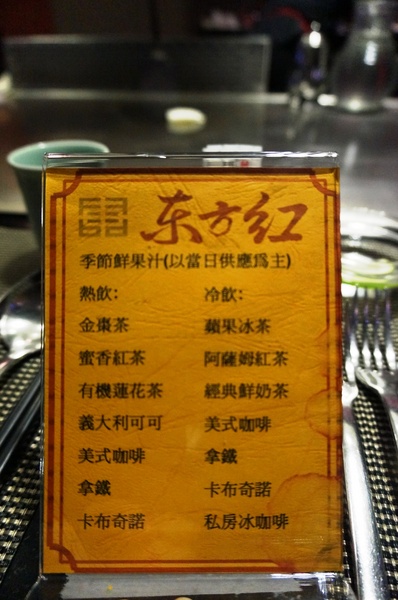 东方红
季節鮮果汁(以當日供應爲主)
熱飲:
金棗茶
蜜香紅茶
有機蓮花茶
義大利可可
美式咖啡
拿鐵
卡布奇諾
冷飲:
蘋果冰茶
阿薩姆紅茶
經典鮮奶茶
美式咖啡
拿鐵
卡布奇諾
私房冰咖啡